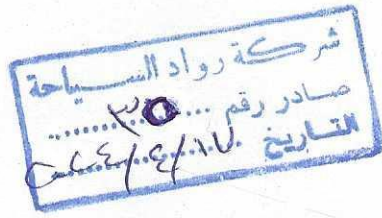 شركة رواد السياحة
صادر رقم ... ٣٥ ...
التاريخ ١٧/٤/٢٠٢٤